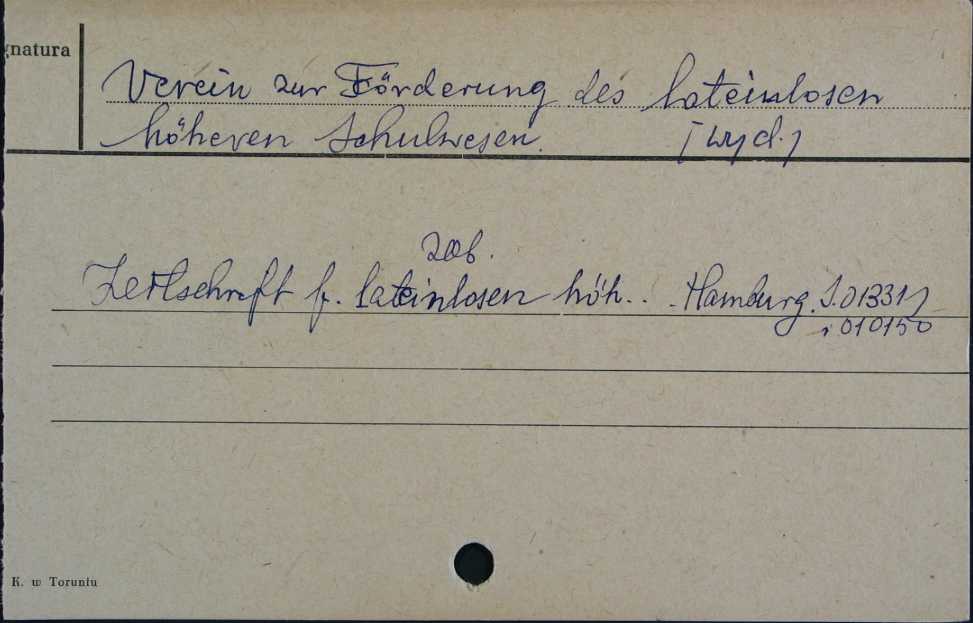 gnatura
Verein zur Förderung des lateinlosen
höheren Schulwesen. [wyd.]
zob.
Zeitschrift f. lateinlosen höh.. Hamburg. S.01331
i 010150
K. w Toruniu